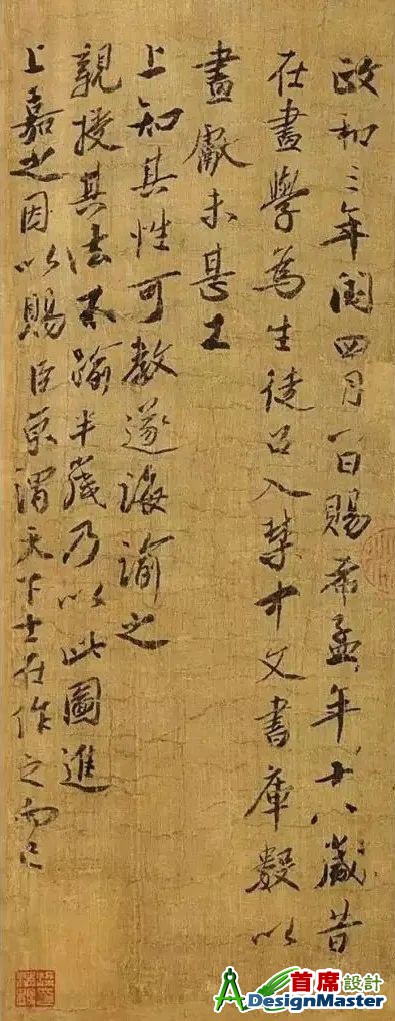 政和三年閏四月一日賜希孟年十八歲昔
在畫學為生徒召入禁中文書庫數以
畫獻未甚工
上知其性可教遂誨諭之
親授其法不踰半歲乃以此圖進
上嘉之因以賜臣京謂天下士在作之而已
首席設計
ADesignMaster